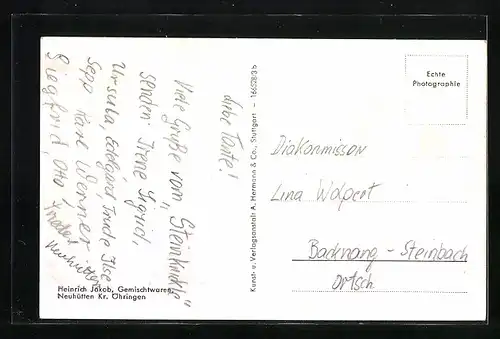 Liebe Tante!
Viele Grüße vom "Steinknickle"
senden Irene Sigrid,
Ursula, Edelgard, Trude Ilse
Sepp Karl Werner
Siegfried, Otto,
Neuhütten
Heinrich Jakob, Gemischtwaren,
Neuhütten Kr. Öhringen
Kunst- u. Verlagsanstalt A. Hermann & Co., Stuttgart - 166528/3 b
Echte
Photographie
Diakonmisson
Lina Wolpert
Backnang-Steinbach
Ortsch